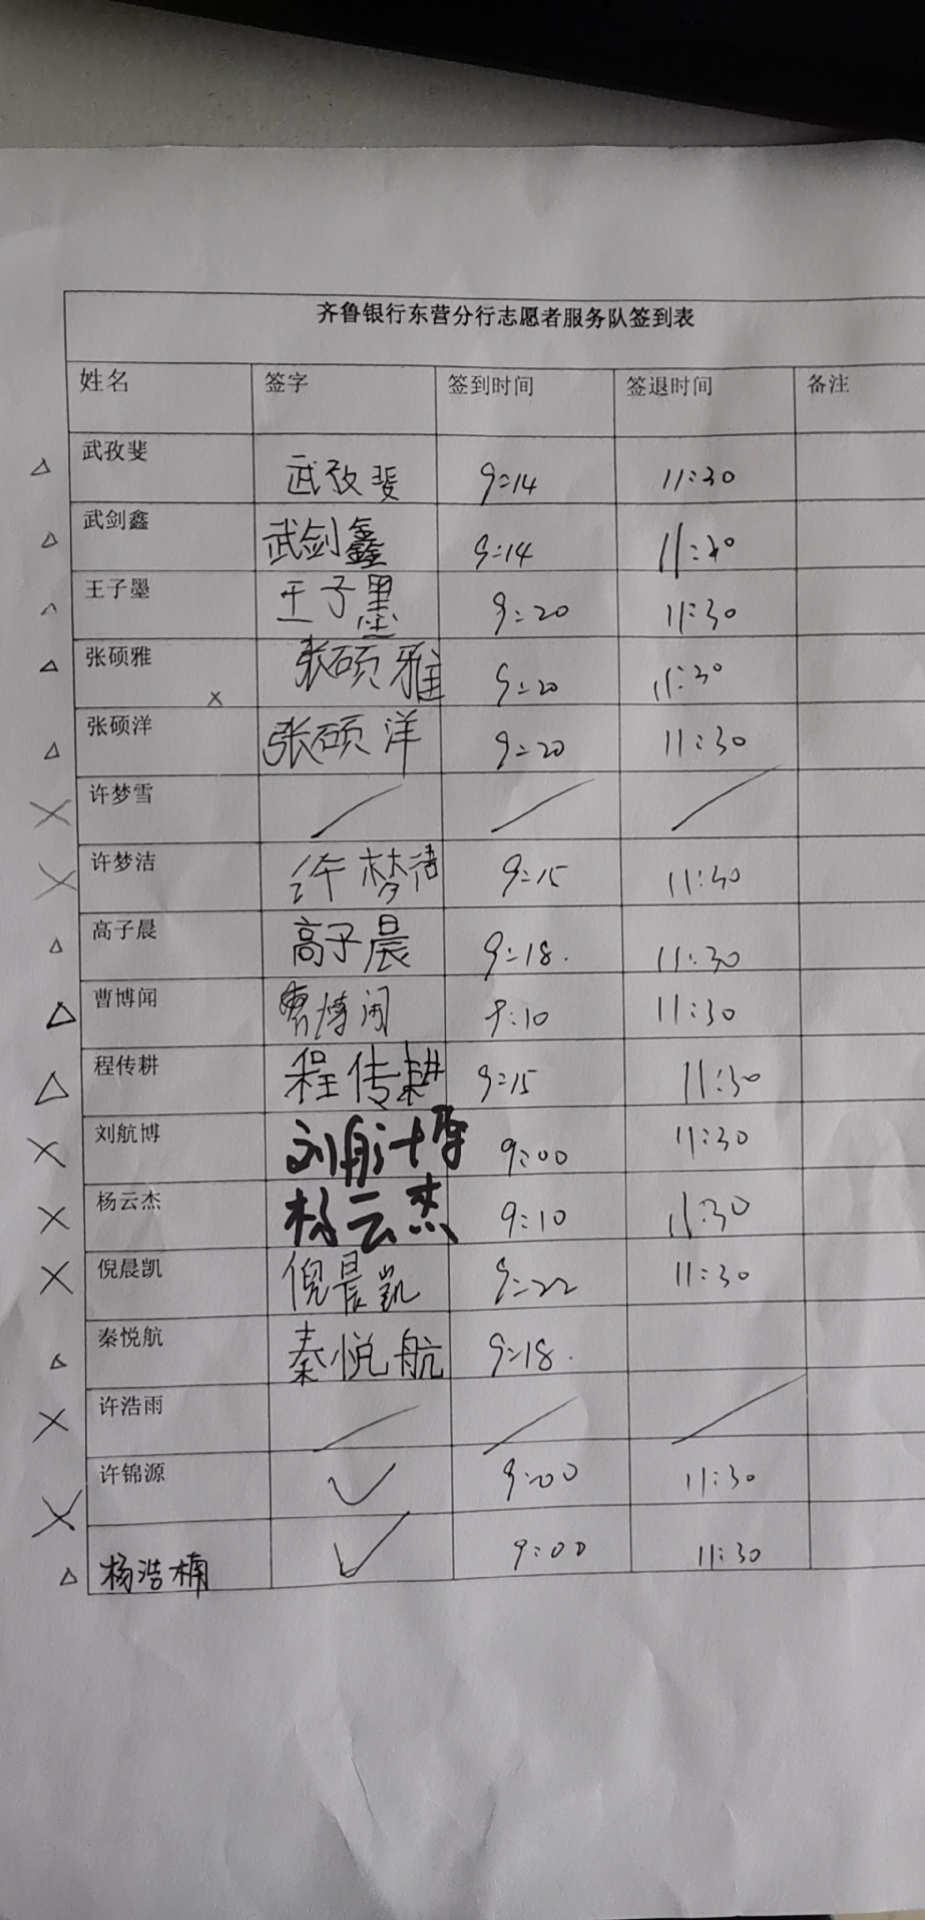 齐鲁银行东营分行志愿者服务队签到表
姓名 签字 签到时间 签退时间 备注
△ 武孜斐 武孜斐 9:14 11:30
△ 武剑鑫 武剑鑫 9:14 11:30
王子墨 王子墨 9:20 11:30
△ 张硕雅 × 张硕雅 9:20 11:30
△ 张硕洋 张硕洋 9:20 11:30
× 许梦雪 / / /
× 许梦洁 许梦洁 9:15 11:30
△ 高子晨 高子晨 9:18. 11:30
△ 曹博闻 曹博闻 9:10 11:30
△ 程传耕 程传耕 9:15 11:30
× 刘航博 刘航博 9:00 11:30
× 杨云杰 杨云杰 9:10 11:30
× 倪晨凯 倪晨凯 9:22 11:30
△ 秦悦航 秦悦航 9:18.
× 许浩雨 / / /
× 许锦源 ✓ 9:00 11:30
△ 杨浩楠 ✓ 9:00 11:30